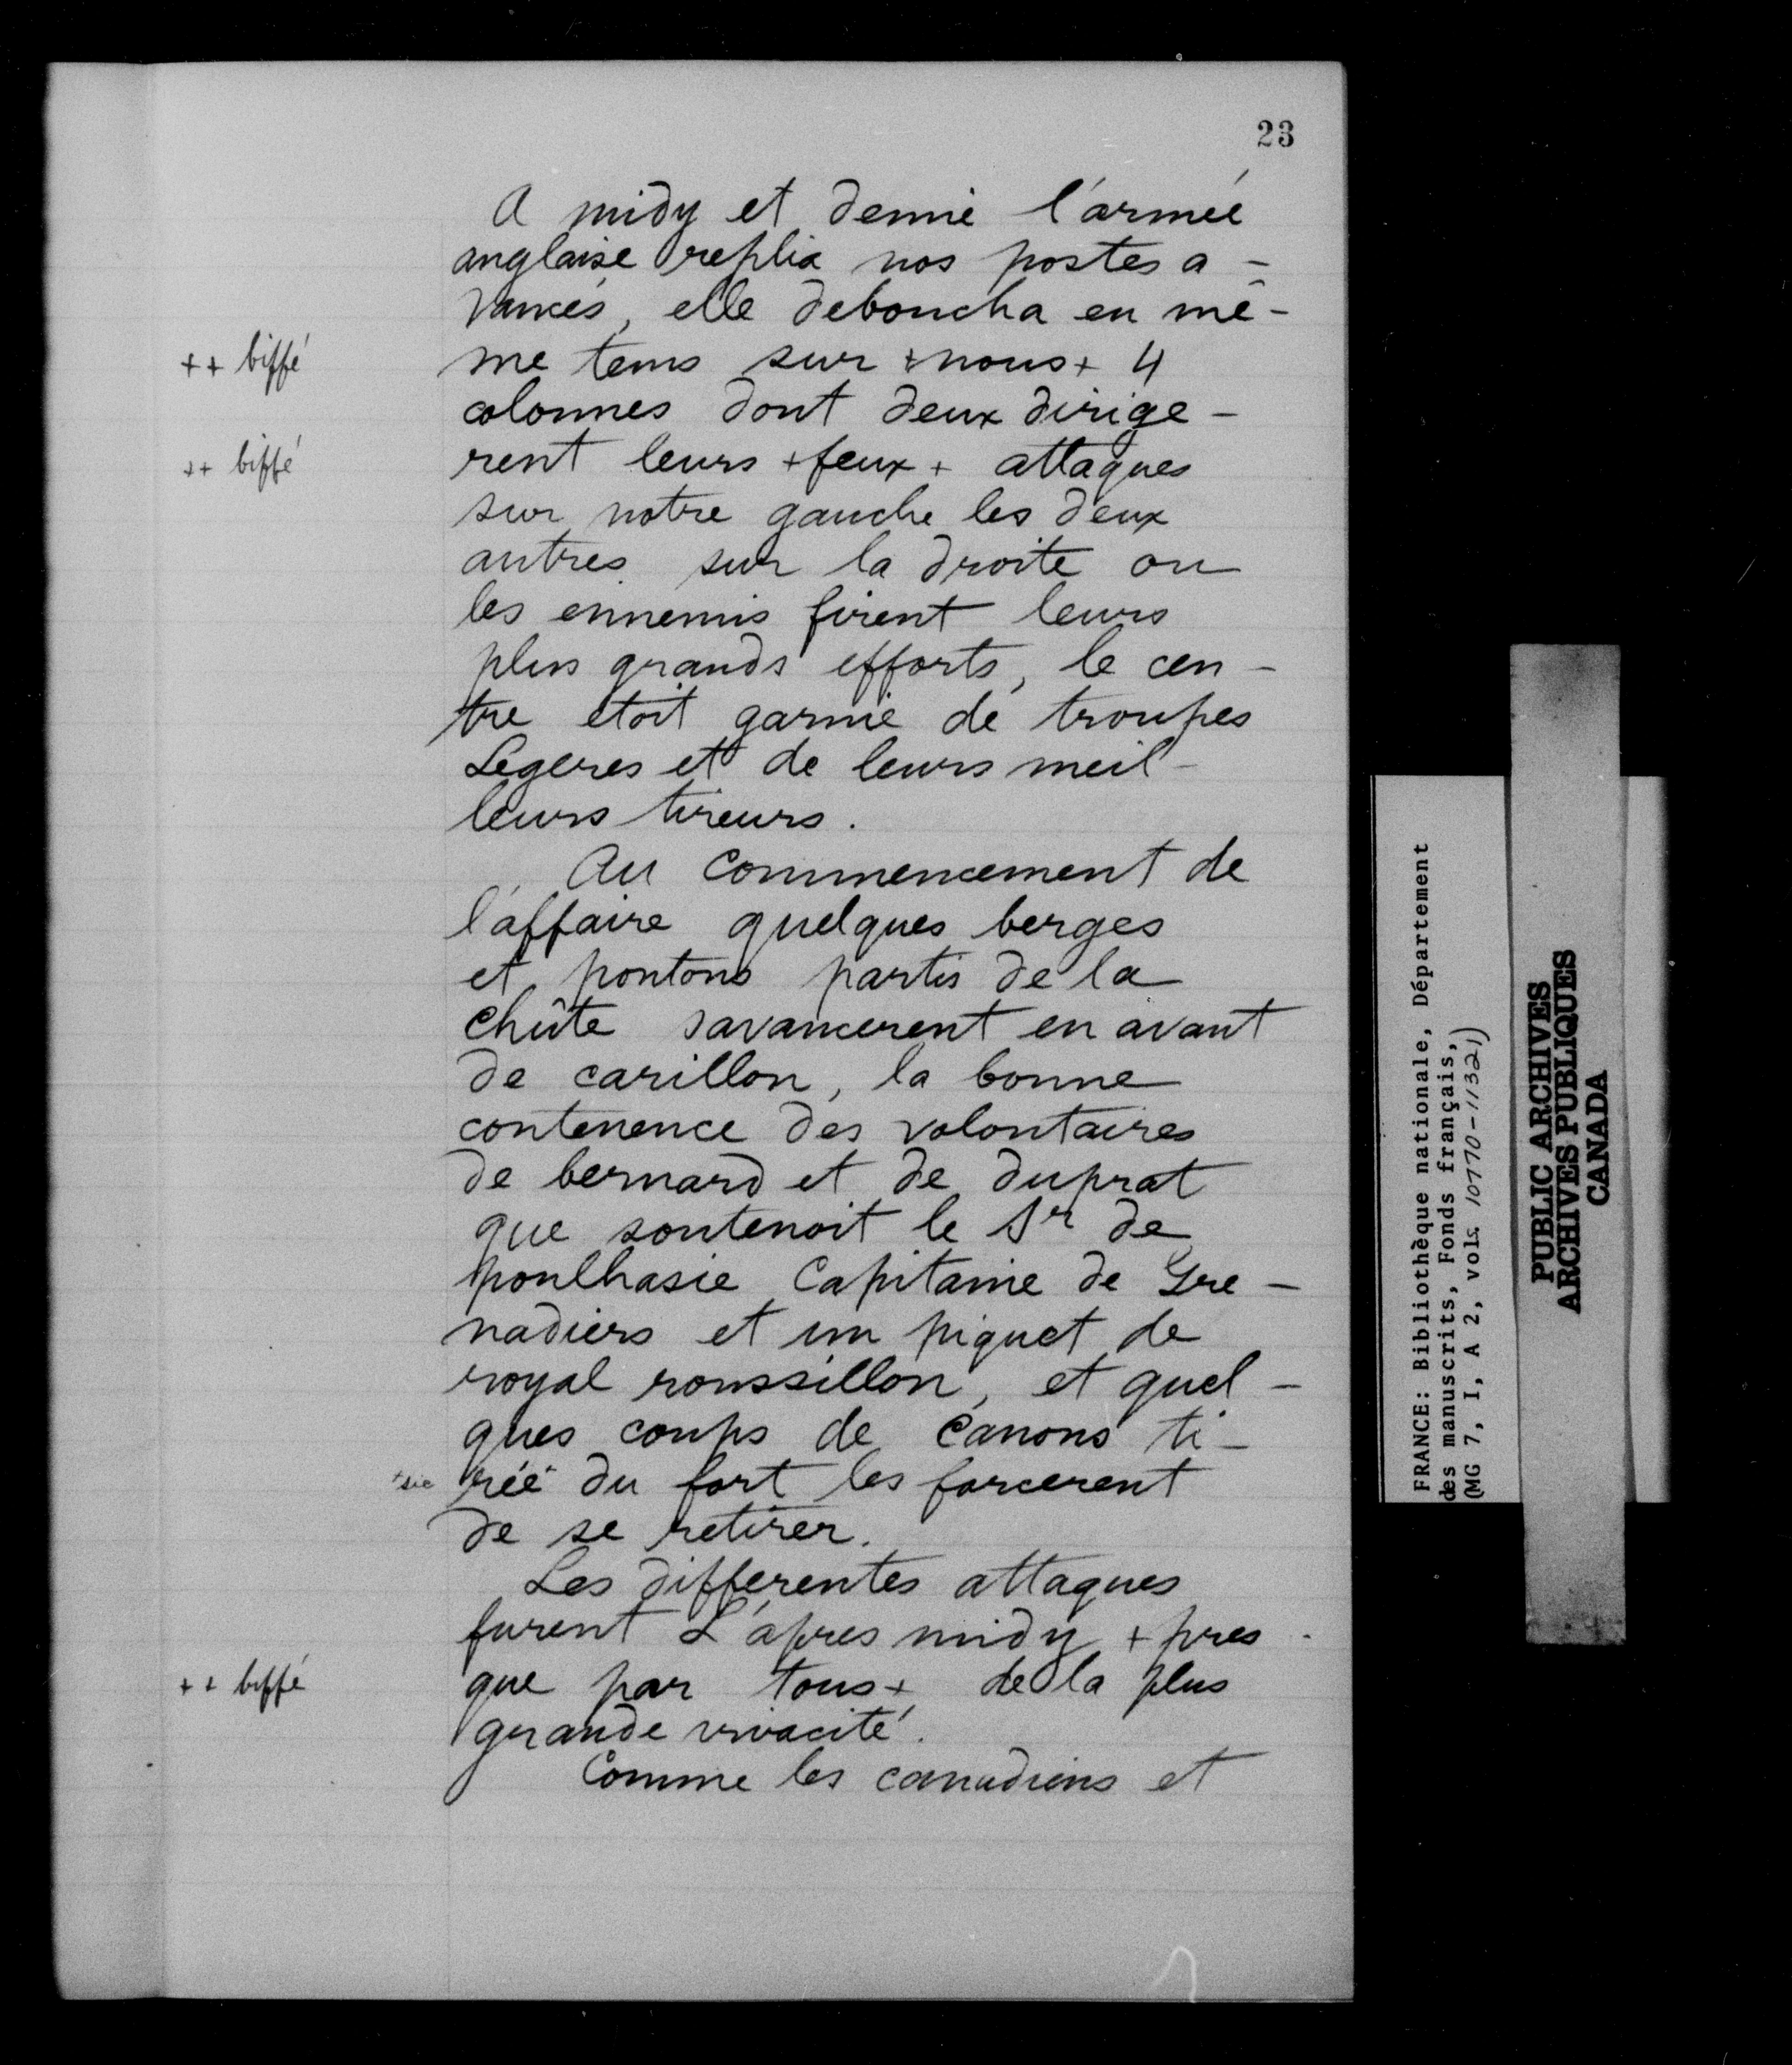 23
A midy et demie l'armée
anglaise replia nos postes a-
vancés, elle deboucha en mê-
++ biffé me tems sur +nous+ 4
colonnes dont deux dirige-
++ biffé rent leurs +feux+ attaques
sur notre gauche les deux
autres sur la droite ou
les ennemis firent leurs
plus grands efforts, le cen-
tre etoit garnie de troupes
Legeres et de leurs meil-
leurs tireurs.
Au Commencement de
l'affaire quelques berges
et pontons partis de la
Chûte savancerent en avant
de carillon, la bonne
contenence des volontaires
de bernard et de duprat
que soutenoit le Sr de
poulhasie Capitaine de Gre-
nadiers et un piquet de
royal roussillon, et quel-
ques coups de Canons ti-
+sic rée+ du fort les forcerent
de se retirer.
Les differentes attaques
furent L'apres midy +pres-
++ biffé que par tous+ de la plus
grande vivacité.
Comme les canadiens et
FRANCE: Bibliothèque nationale, Département
des manuscrits, Fonds français,
(MG 7, I, A 2, vols. 10770-11321)
PUBLIC ARCHIVES
ARCHIVES PUBLIQUES
CANADA